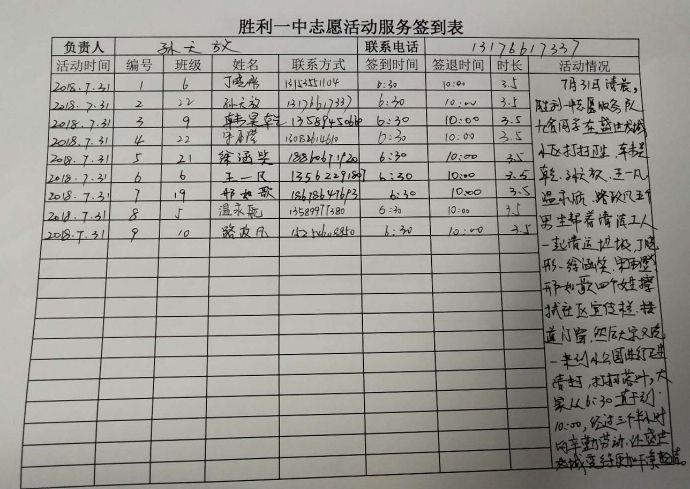 胜利一中志愿活动服务签到表
负责人 孙天放 联系电话 13176617337
活动时间 编号 班级 姓名 联系方式 签到时间 签退时间 时长 活动情况
2018.7.31 1 6 丁晓彤 13153551104 6:30 10:00 3.5
2018.7.31 2 22 孙天放 13176617337 6:30 10:00 3.5
2018.7.31 3 9 韩昊乾 6:30 10:00 3.5
2018.7.31 4 22 6:30 10:00 3.5
2018.7.31 5 21 徐涵笑 18860671920 6:30 10:00 3.5
2018.7.31 6 6 王一凡 13562291807 6:30 10:00 3.5
2018.7.31 7 19 邢如歌 18678647693 6:30 10:00 3.5
2018.7.31 8 5 温永航 13589977380 6:30 10:00 3.5
2018.7.31 9 10 路政凡 6:30 10:00 3.5
7月31日清晨,
胜利一中志愿服务队
九名同学在盛世龙城
小区打扫卫生,韩昊
乾、孙天放、王一凡
温永航、路政凡五个
男生帮着清洁工人
一起清运垃圾,丁晓
彤、徐涵笑、
邢如歌四个女生擦
拭社区宣传栏、楼
道门窗,然后大家又
一来到小公园进行卫生
清扫,打扫落叶,大
家从6:30直干到
10:00,经过三个半小时
的辛勤劳动,让盛世
龙城变得更加干净整洁。